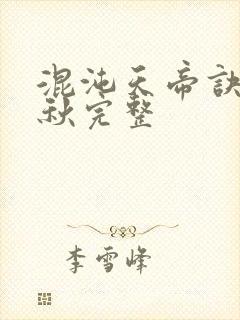 混沌天帝訣
秋完整
李雪峰